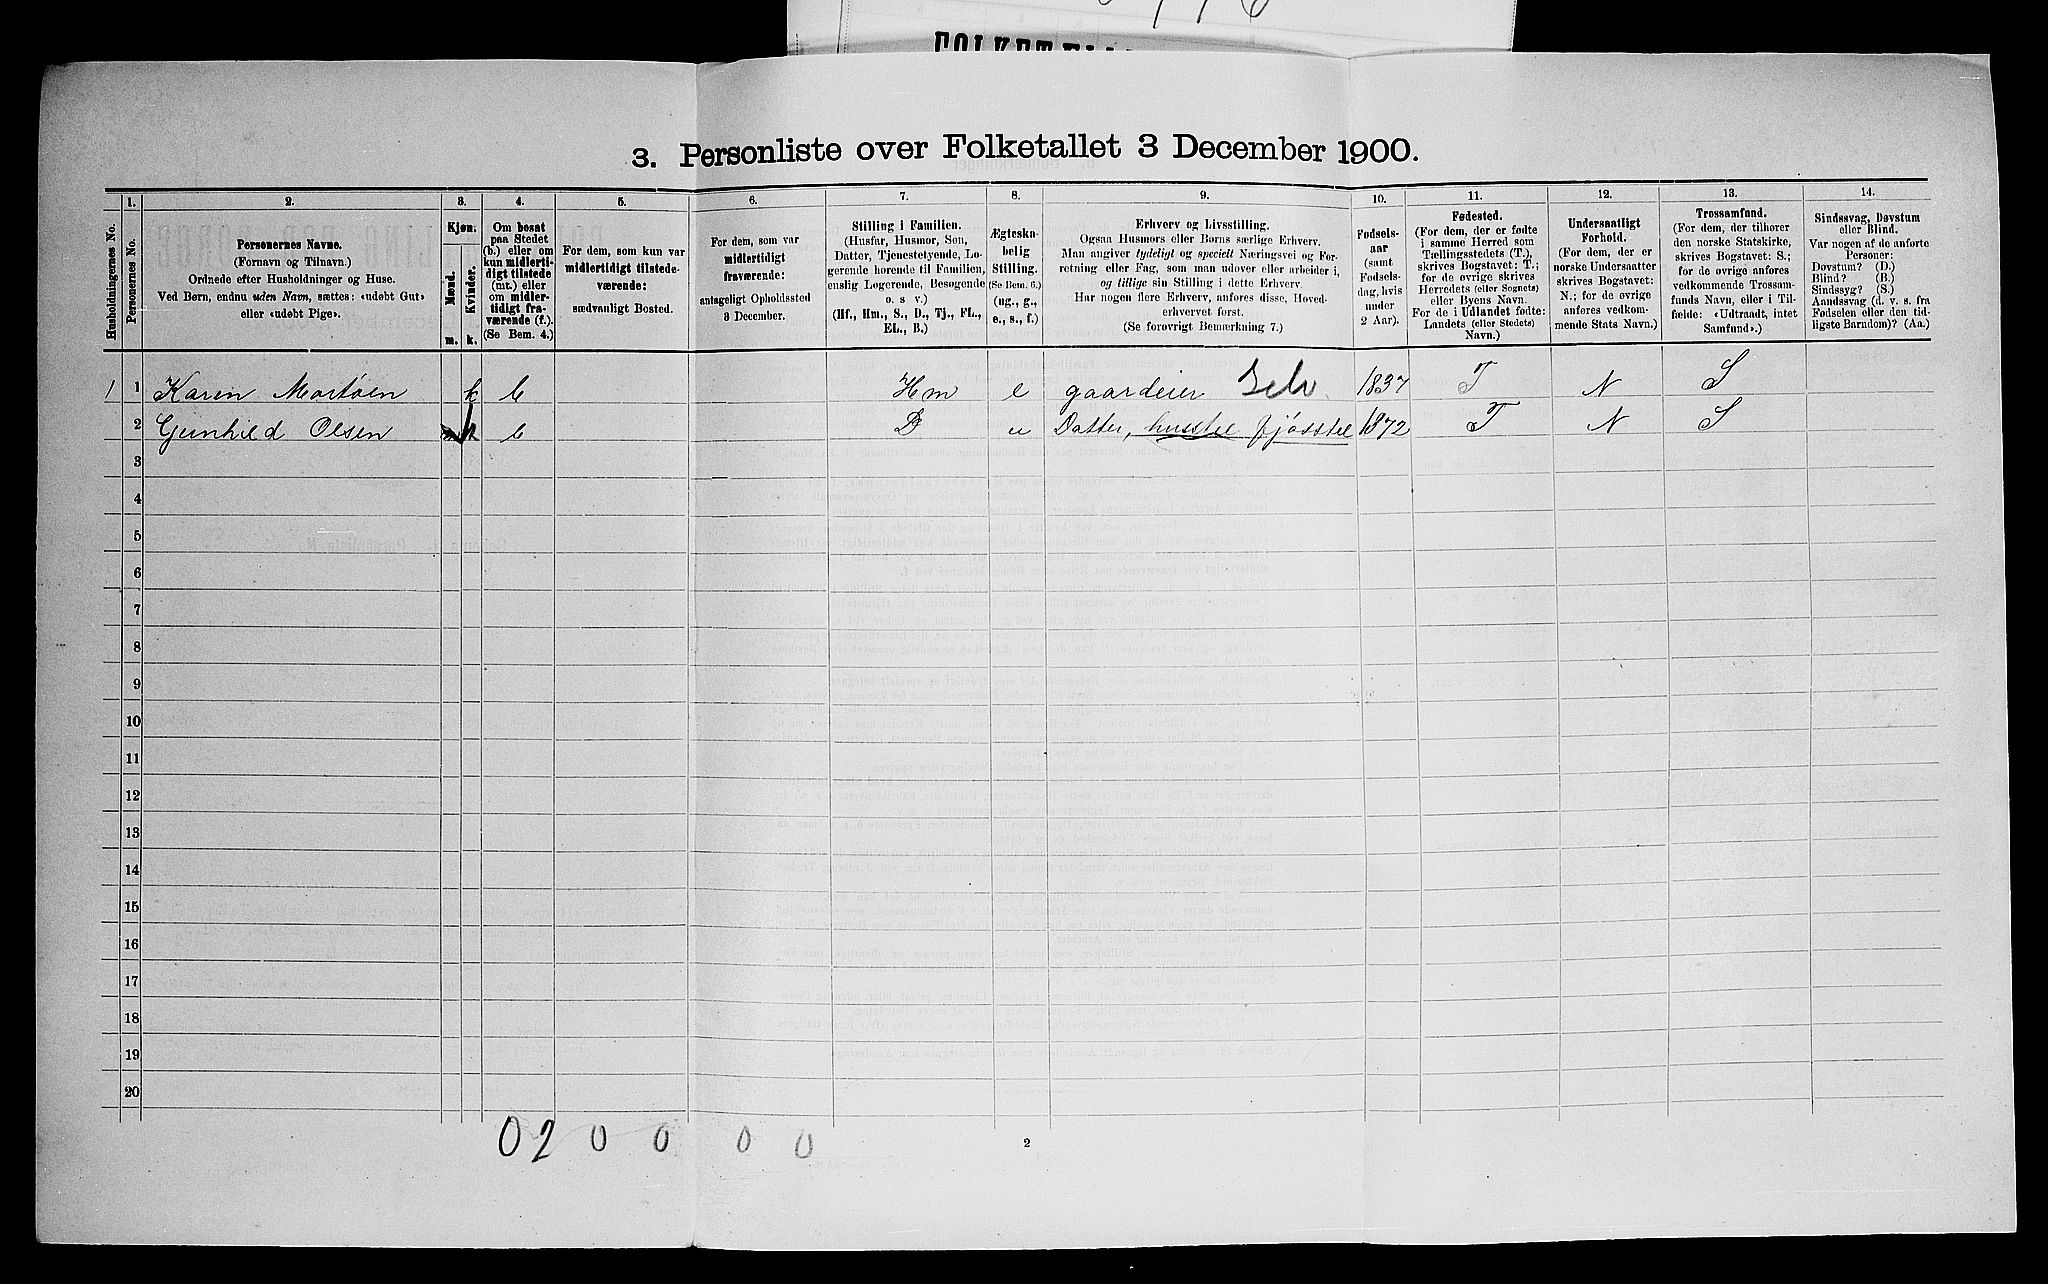 FOLKETÆLL
3. Personliste over Folketallet 3 December 1900.
Husholdningernes No.
1.
Personernes No.
2.
Personernes Navne.
(Fornavn og Tilnavn.)
Ordnede efter Husholdninger og Huse.
Ved Børn, endnu uden Navn, sættes: «udøbt Gut»
eller «udøbt Pige».
3.
Kjøn.
Mænd.
Kvinder.
m. k.
4.
Om bosat
paa Stedet
(b.) eller om
kun midlerti-
digt tilstede
(mt.) eller
om midler-
tidigt fra-
værende (f.).
(Se Bem. 4.)
5.
For dem, som kun var
midlertidigt tilstede-
værende:
sædvanligt Bosted.
6.
For dem, som var
midlertidigt
fraværende:
antageligt Opholdssted
3 December.
7.
Stilling i Familien.
(Husfar, Husmor, Søn,
Datter, Tjenestetyende, Lo-
gerende hørende til Familien,
enslig Logerende, Besøgende
o. s v.)
(Hf., Hm., S., D., Tj., FL.,
EL., B.)
8.
Ægteska-
belig
Stilling.
(Se Bem. 6.)
(ug., g.,
e., s., f.)
9.
Erhverv og Livsstilling.
Ogsaa Husmors eller Børns særlige Erhverv.
Man angiver tydeligt og specielt Næringsvei og For-
retning eller Fag, som man udøver eller arbeider i,
og tillige sin Stilling i dette Erhverv.
Har nogen flere Erhverv, anføres disse, Hoved-
erhvervet først.
(Se forøvrigt Bemærkning 7.)
10.
Fødsels-
aar
(samt
Fødsels-
dag, hvis
under
2 Aar).
11.
Fødested.
(For dem, der er fødte
i samme Herred som
Tællingsstedets (T.),
skrives Bogstavet: T.;
for de øvrige skrives
Herredets (eller Sognets)
eller Byens Navn.
For de i Udlandet fødte:
Landets (eller Stedets)
Navn.)
12.
Undersaatligt
Forhold.
(For dem, der er
norske Undersaatter
skrives Bogstavet:
N.; for de øvrige
anføres vedkom-
mende Stats Navn.)
13.
Trossamfund.
(For dem, der tilhører
den norske Statskirke,
skrives Bogstavet: S.;
for de øvrige anføres
vedkommende Trossam-
funds Navn, eller i Til-
fælde: «Udtraadt, intet
Samfund».)
14.
Sindssvag, Døvstum
eller Blind.
Var nogen af de anførte
Personer:
Døvstum? (D.)
Blind? (B.)
Sindssyg? (S.)
Aandssvag (d. v. s. fra
Fødselen eller den tid-
ligste Barndom)? (Aa.)
1 1 Karen Mortøen k b Hm e gaardeier Selv 1837 T N S
2 Gunhild Olsen k b D u Datter, husstel fjøsstel 1872 T N S
3
4
5
6
7
8
9
10
11
12
13
14
15
16
17
18
19
20
02 0 0 0 0
2